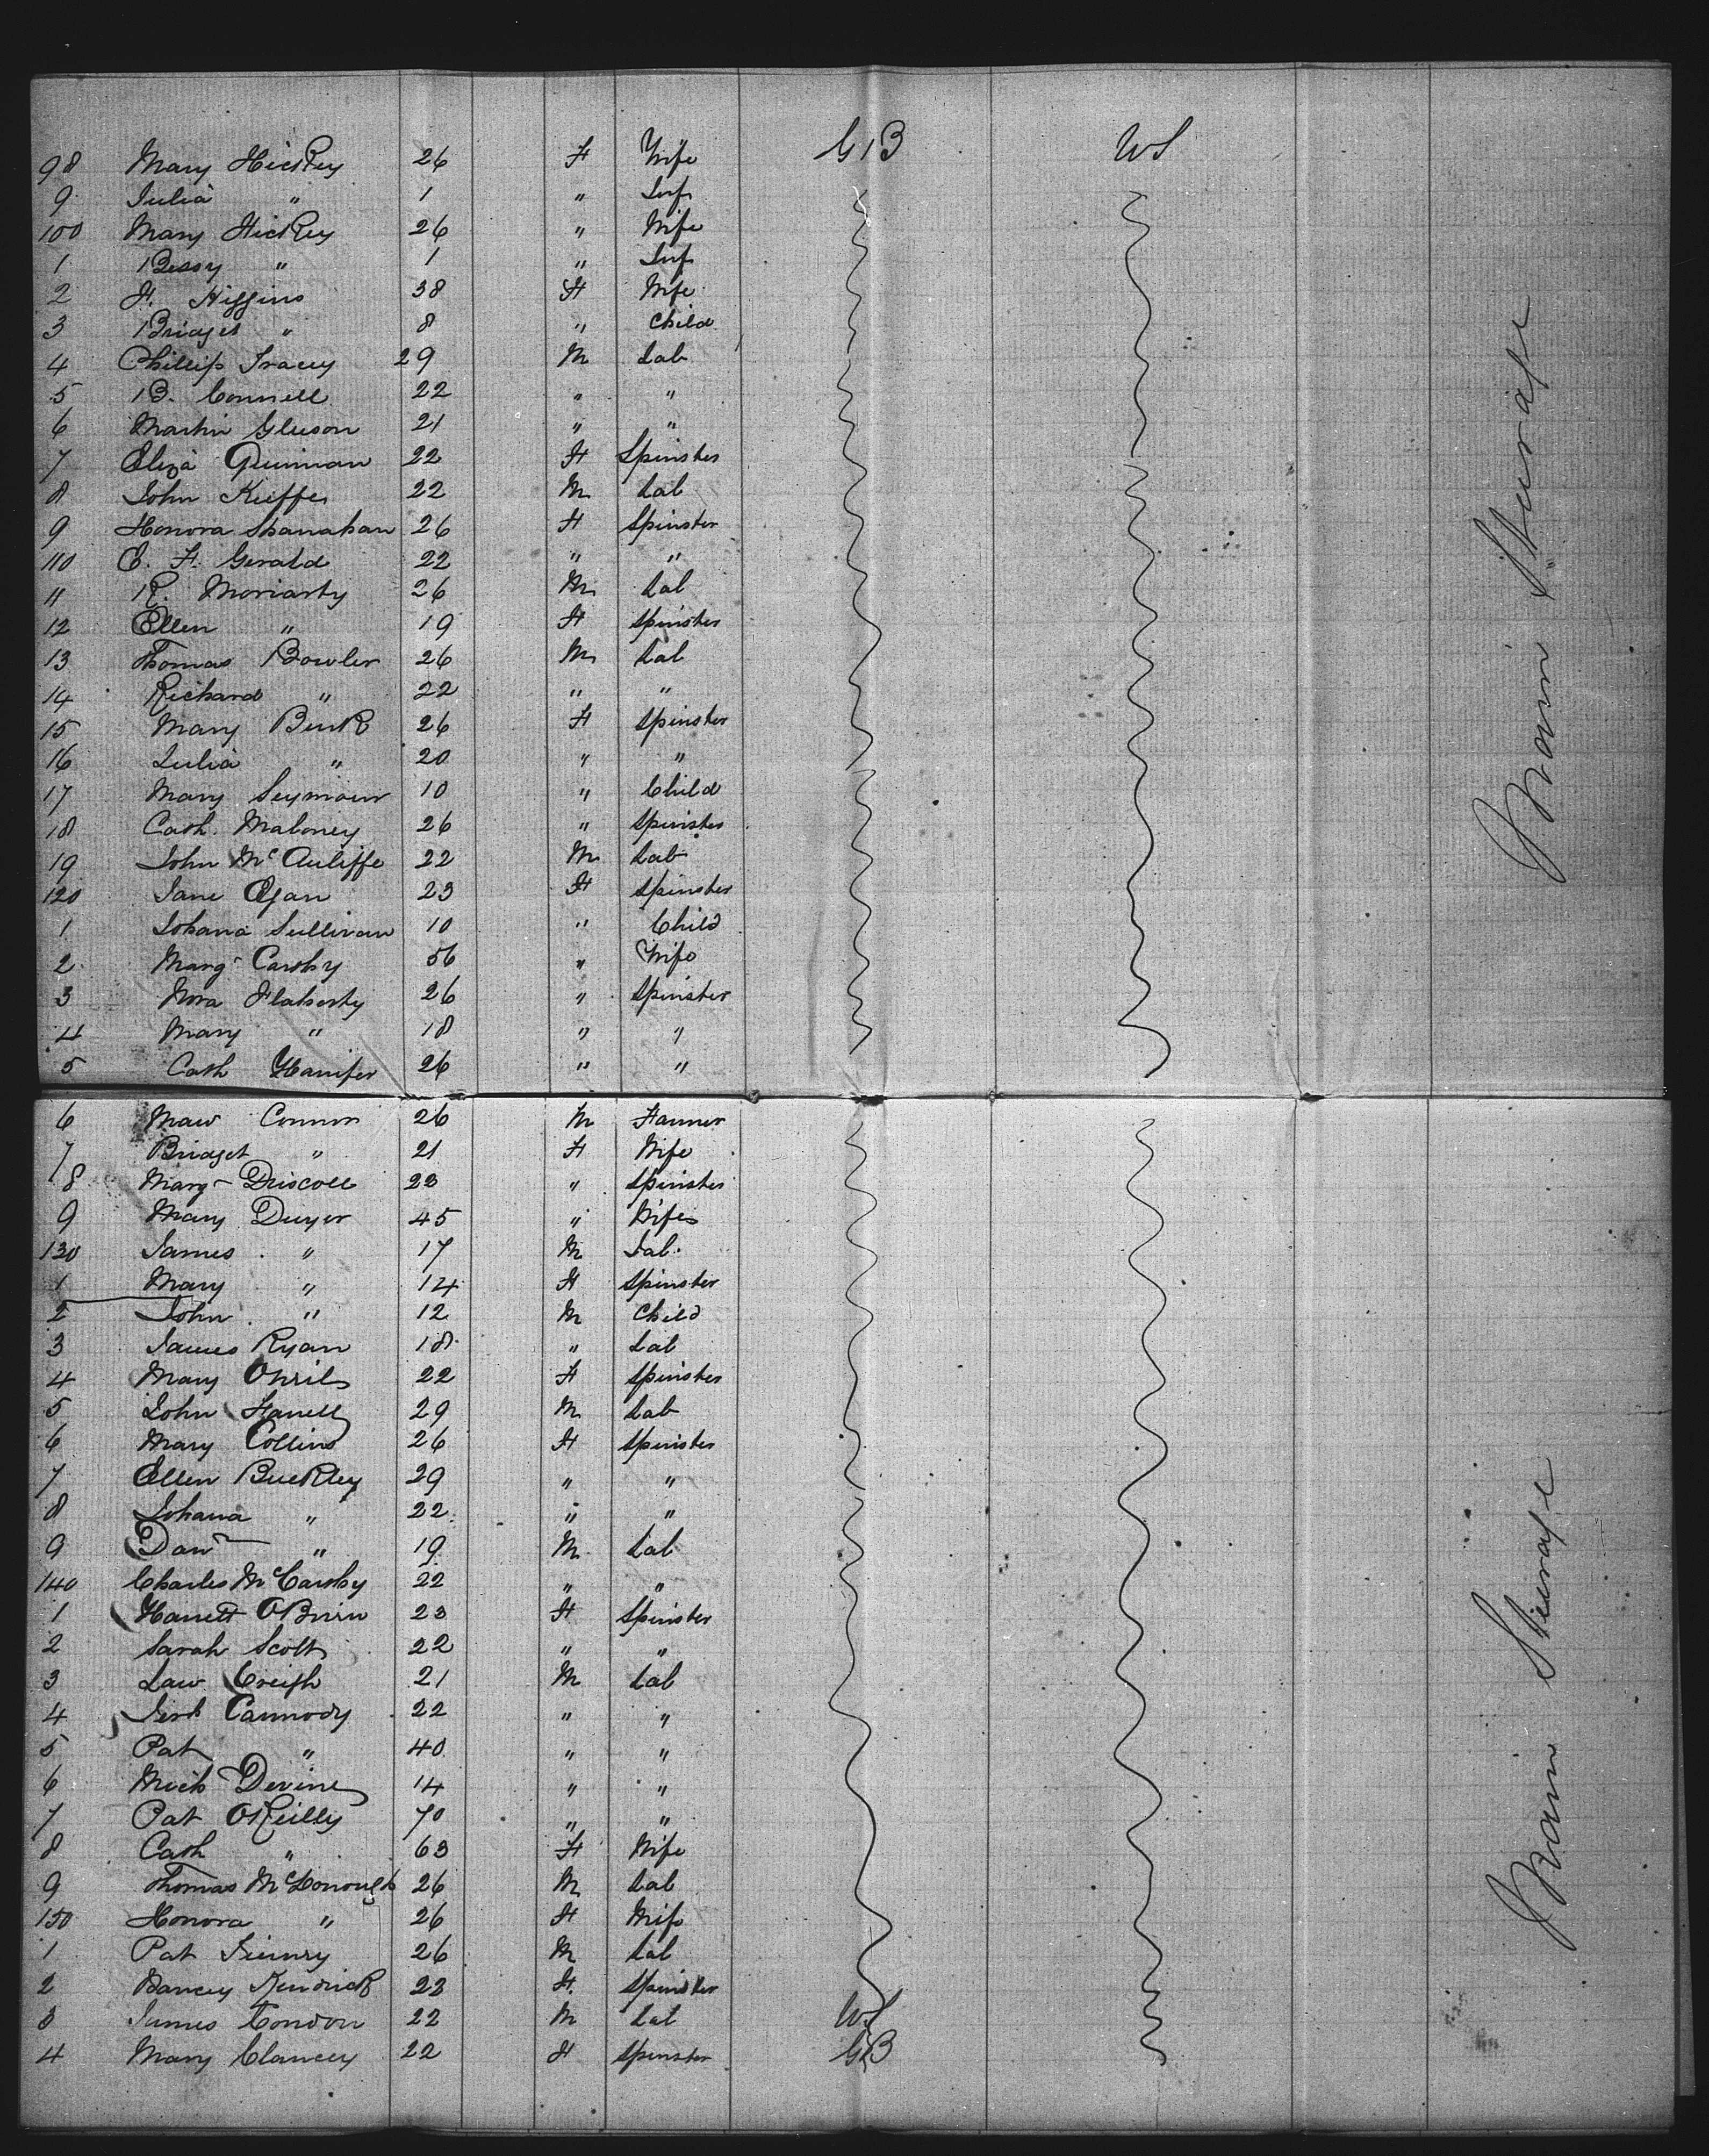 98 Mary Hickey 26 F Wife GB US
9 Julia " 1 " Inf
100 Mary Hickey 26 " Wife
1 Bessy " 1 " Inf
2 H. Higgins 38 F Wife
3 Bridget " 8 " Child
4 Phillip Tracey 29 M Lab
5 B. Connell 22 " "
6 Martin Gleeson 21 " "
7 Eliza Quinnan 22 F Spinster
8 John Kieffe 22 M Lab
9 Honora Shanahan 26 F Spinster
110 E. F. Gerald 22 " "
11 R. Moriarty 26 M Lab
12 Ellen " 19 F Spinster
13 Thomas Bowler 26 M Lab
14 Richard " 22 " "
15 Mary Burk 26 F Spinster
16 Julia " 20 " "
17 Mary Seymour 10 " Child
18 Cath. Maloney 26 " Spinster
19 John McAuliffe 22 M Lab
120 Jane Egan 23 F Spinster
1 Johana Sullivan 10 " Child
2 Marg Carthy 56 " Wife
3 Nora Flaherty 26 " Spinster
4 Mary " 18 " "
5 Cath Hanifer 26 " "
Main Steerage
6 Maw Connor 26 M Farmer
7 Bridget " 21 F Wife
8 Marg Driscoll 23 " Spinster
9 Mary Dwyer 45 " Wife
130 James " 17 M Lab.
1 Mary " 14 F Spinster
2 John " 12 M Child
3 James Ryan 18 " Lab
4 Mary 22 F Spinster
5 John 29 M Lab
6 Mary Collins 26 F Spinster
7 Ellen Buckley 29 " "
8 Johana " 22 " "
9 Dan " 19 M Lab
140 Charles McCarthy 22 " "
1 Harriett OBrien 23 F Spinster
2 Sarah Scott 22 " "
3 Law Creigh 21 M Lab
4 Carmody 22 " "
5 Pat " 40 " "
6 Mich Devine 14 " "
7 Pat OReilly 70 " "
8 Cath " 63 F Wife
9 Thomas McDonough 26 M Lab
150 Honora " 26 F Wife
1 Pat 26 M Lab
2 Nancy Kendrick 22 F. Spinster
3 James Condon 22 M Lab US
4 Mary Clancey 22 F Spinster GB
Main Steerage